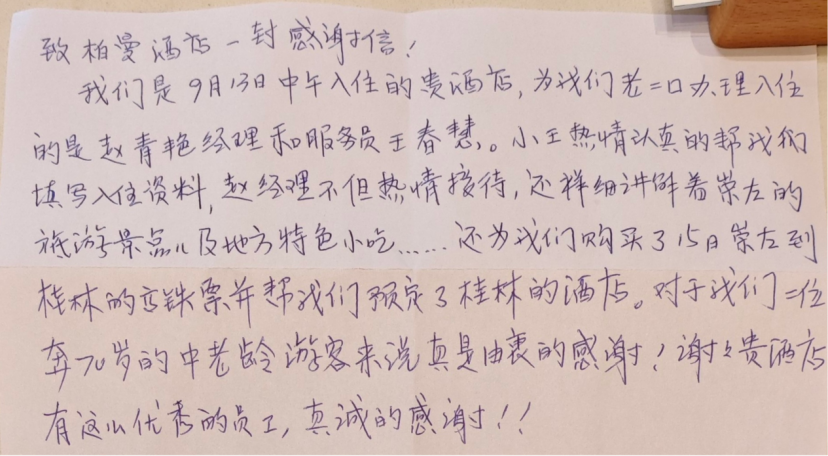 致柏曼酒店一封感谢信！
我们是9月13日中午入住的贵酒店，为我们老二口办理入住
的是赵青艳经理和服务员王春慧。小王热情认真的帮我们
填写入住资料，赵经理不但热情接待，还祥细讲解着崇左的
旅游景点儿及地方特色小吃……还为我们购买了15日崇左到
桂林的高铁票并帮我们预定了桂林的酒店。对于我们二位
奔70岁的中老龄游客来说真是由衷的感谢！谢々贵酒店
有这么优秀的员工，真诚的感谢！！